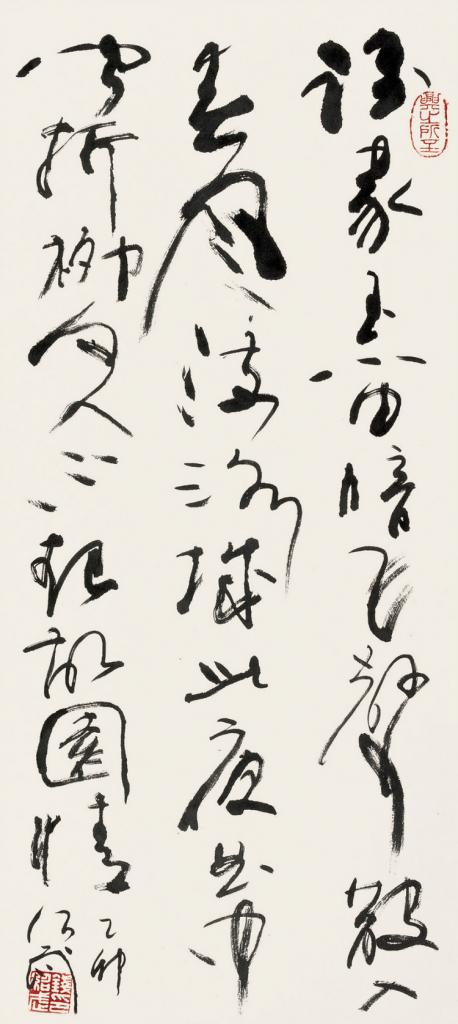 誰家玉笛暗飛聲散入
春風滿洛城此夜曲中
聞折柳何人不起故園情
乙卯
紹武
興之所至